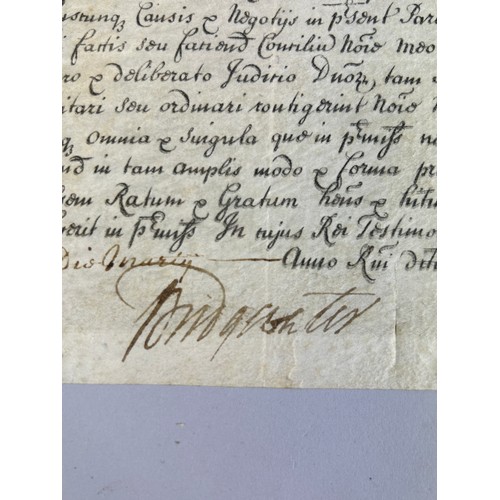 Causis & Negotijs in p̃sent Par
factis seu faciend Consilium Nõie meo
& deliberato Judicio Dñoz, tam
seu ordinari contigerint Nõie
omnia & singula que in p̃miss
in tam amplis modo & Forma
Ratum & Gratum hẽns &
in p̃miss In cujus Rei Testimo
Die Martij Anno Rñi
Bridgewater